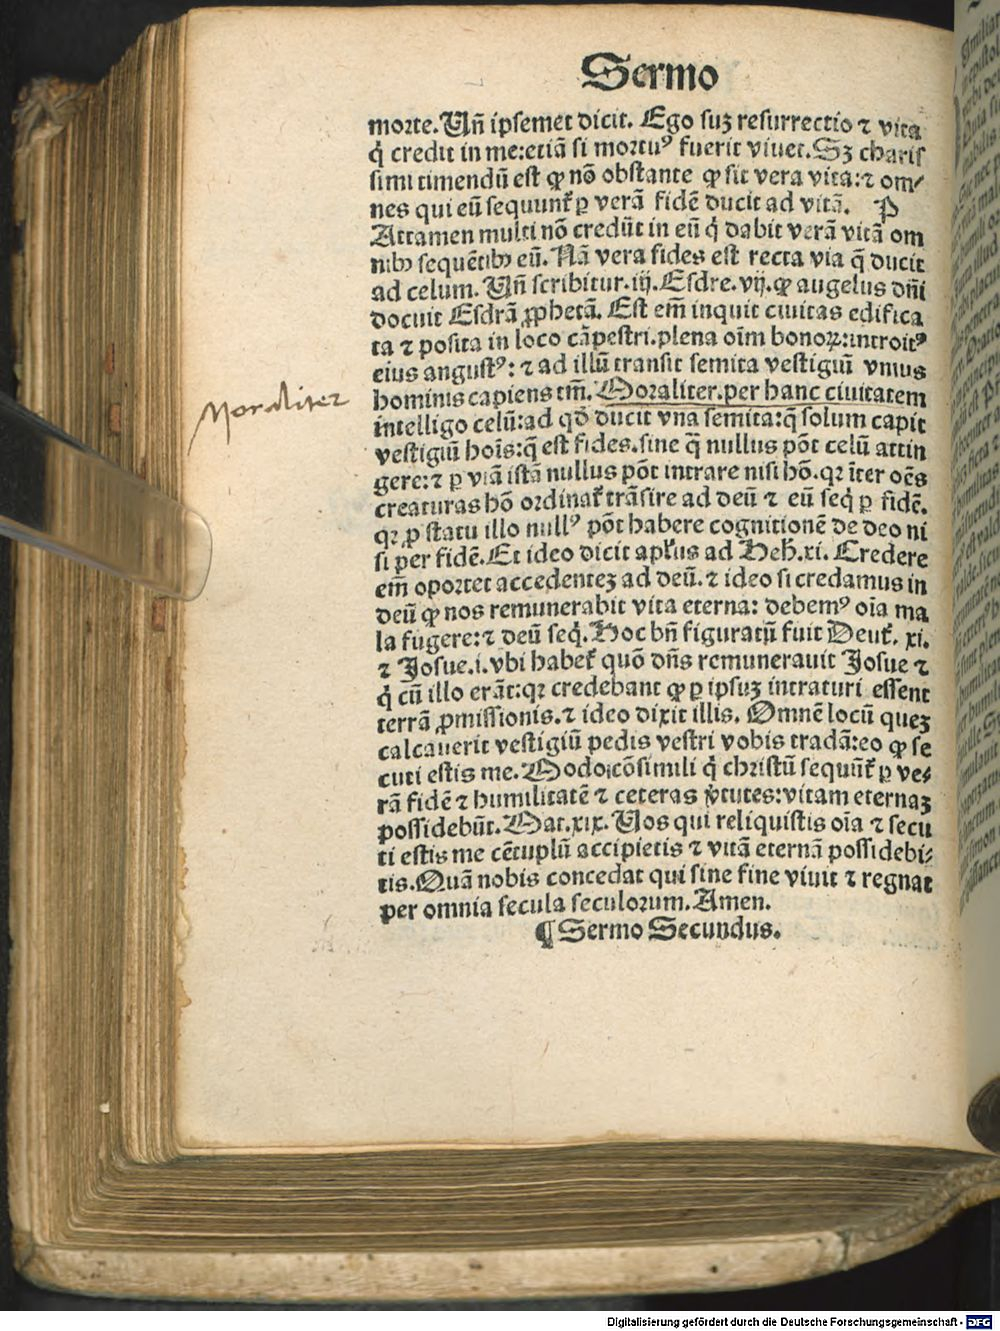 Sermo
morte. Un̄ ipsemet dicit. Ego suꝫ resurrectio ⁊ vita
q̇ credit in me: etiā si mortuꝰ fuerit viuet. Sꝫ charis
simi timendū est ꝙ nō obstante ꝙ sit vera vita: ⁊ om⸗
nes qui eū sequunt᷑ ꝑ verā fidē ducit ad vitā. P
Attamen multi nō credūt in eū q̇ dabit verā vitā om
nibꝫ sequētibꝫ eū. Nā vera fides est recta via q̄ ducit
ad celum. Un̄ scribitur. iij. Esdre. vij. ꝙ angelus dn̄i
docuit Esdrā ꝓphetā. Est em̄ inquit ciuitas edifica
ta ⁊ posita in loco cāpestri. plena oīm bonoꝝ: introitꝰ
eius angustꝰ: ⁊ ad illū transit semita vestigiū vnius
hominis capiens tm̄. Moraliter. per hanc ciuitatem
Moraliter
intelligo celū: ad qd̄ ducit vna semita: q̄ solum capit
vestigiū hoīs: q̄ est fides. sine q̄ nullus pōt celū attin
gere: ⁊ ꝑ viā istā nullus pōt intrare nisi hō. qꝛ īter oēs
creaturas hō ordinat᷑ trāsire ad deū ⁊ eū seq̇ ꝑ fidē.
qꝛ ꝓ statu illo nullꝰ pōt habere cognitionē de deo ni
si per fidē. Et ideo dicit apl̓us ad Heb̄. xi. Credere
em̄ oportet accedenteꝫ ad deū. ⁊ ideo si credamus in
deū ꝙ nos remunerabit vita eterna: debemꝰ oīa ma
la fugere: ⁊ deū seq̇. Hoc bn̄ figuratū fuit Deut᷑. xi.
⁊ Josue. i. vbi habet᷑ quō dn̄s remunerauit Josue ⁊
q̇ cū illo erāt: qꝛ credebant ꝙ ꝑ ipsuꝫ intraturi essent
terrā ꝓmissionis. ⁊ ideo dixit illis. Omnē locū queꝫ
calcauerit vestigiū pedis vestri vobis tradā: eo ꝙ se
cuti estis me. Modo cōsimili q̇ christū sequūt᷑ ꝑ ve⸗
rā fidē ⁊ humilitatē ⁊ ceteras v̓tutes: vitam eternaꝫ
possidebūt. Mat. xix. Uos qui reliquistis oīa ⁊ secu
ti estis me cētuplū accipietis ⁊ vitā eternā possidebi⸗
tis. Quā nobis concedat qui sine fine viuit ⁊ regnat
per omnia secula seculorum. Amen.
¶ Sermo Secundus.
Digitalisierung gefördert durch die Deutsche Forschungsgemeinschaft - DFG